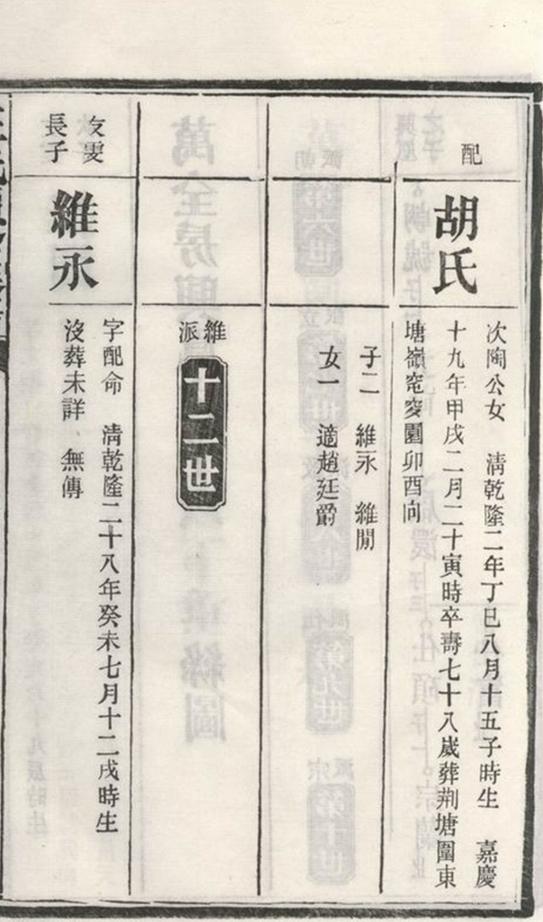 配
胡氏
次陶公女 清乾隆二年丁巳八月十五子時生 嘉慶
十九年甲戌二月二十寅時卒壽七十八歲葬荆塘圍東
塘嶺窀穸園卯酉向
子二 維永 維閒
女一 適趙廷爵
維派
十二世
文雯
長子
維永
字配命 清乾隆二十八年癸未七月十二戌時生
沒葬未詳 無傳